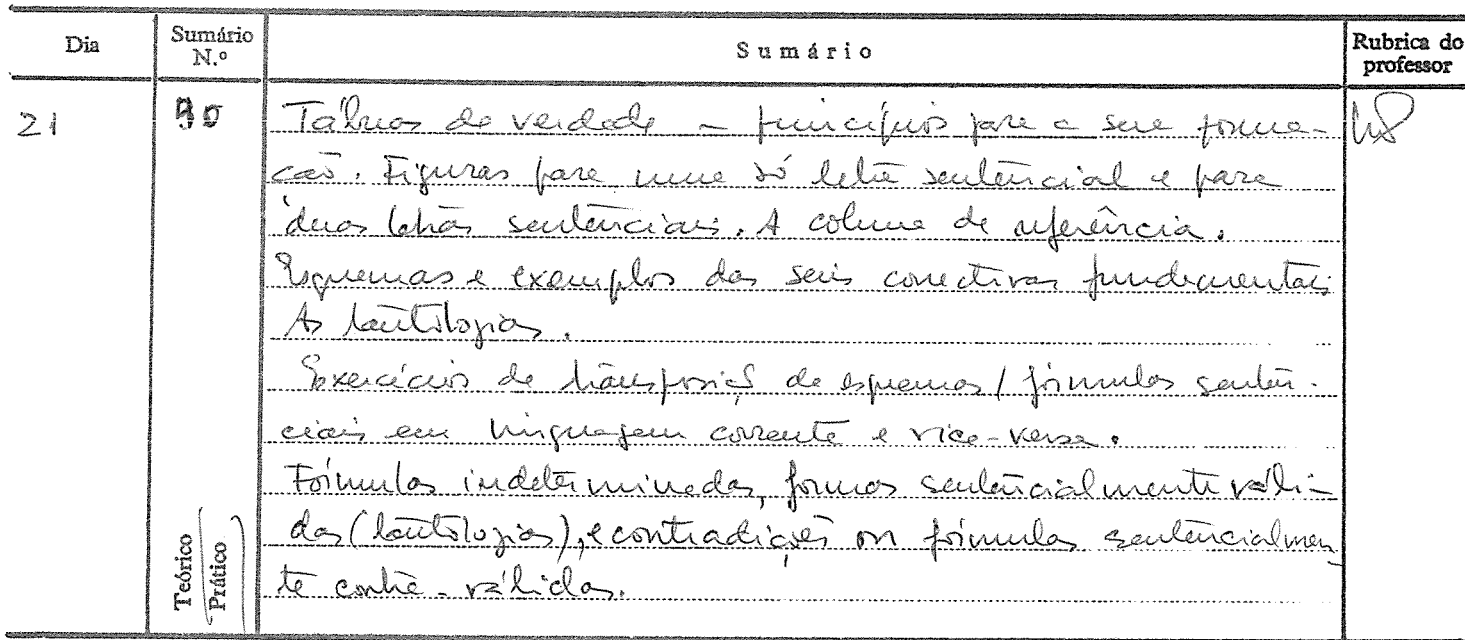 Dia
Sumário N.º
Sumário
Rubrica do professor
21
Tábuas de verdade - princípios para a sua forma-
ção. Figuras para uma só letra sentencial e para
duas letras sentenciais. A coluna de referência.
Esquemas e exemplos das seis conectivas fundamentais
As tautologias.
Exercícios de transposiç de esquemas / fórmulas senten-
ciais em linguagem corrente e vice-versa.
Fórmulas indeterminadas, formas sentencialmente váli-
das (tautologias), e contradições ou fórmulas sentencialmen
te contra-válidas.
Teórico
Prático